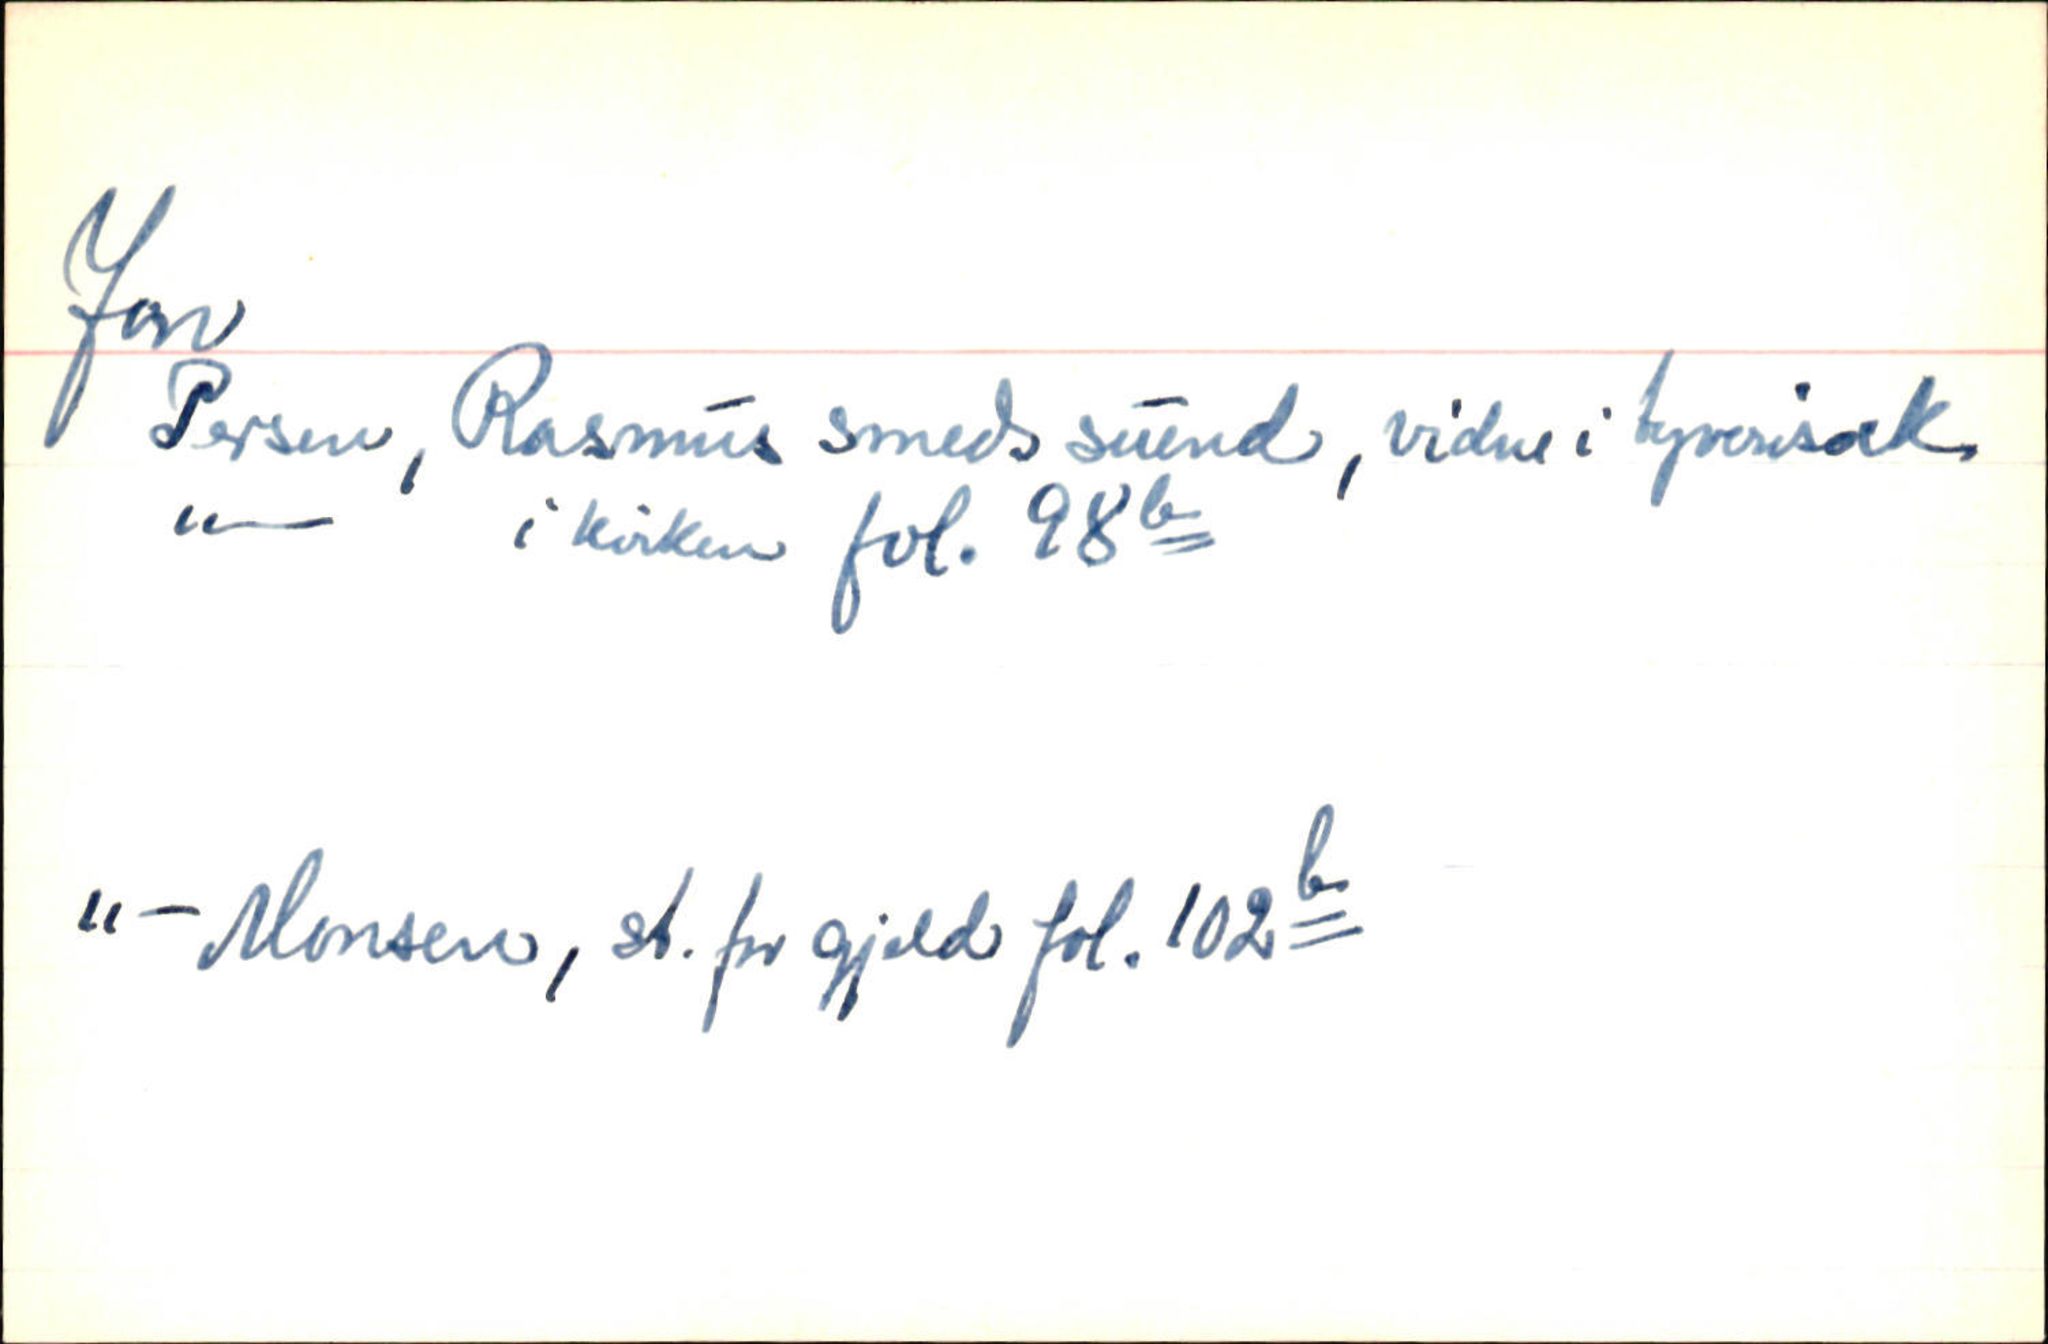 Jon
Persen, Rasmus smeds suend, vidne i tyverisak
"— i kirken fol. 98b
"— Monsen, st. for gjeld fol. 102b